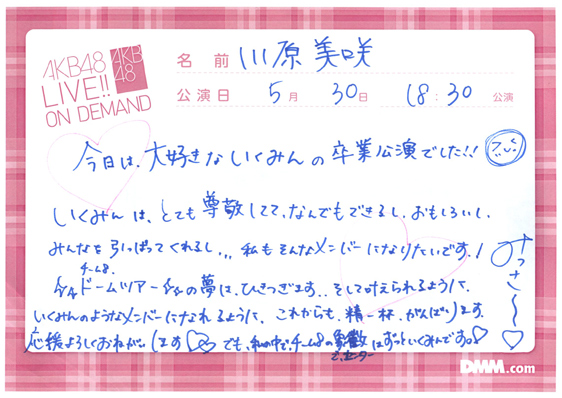 AKB48
LIVE!!
ON DEMAND
AKB
48
名前 川原美咲
公演日 5月 30日 18:30 公演
今日は、大好きないくみんの卒業公演でした!!
いくみんは、とても尊敬してて、なんでもできるし、おもしろいし、
みんなを引っぱってくれるし、、、私もそんなメンバーになりたいです!
チーム8
ドームツアーの夢は、ひきつぎます、、そして叶えられるように、
いくみんのようなメンバーになれるように、これからも、精一杯、がんばります
応援よろしくおねがいします♡♡ でも、私の中で、チーム8の象徴はずっといくみんです。♡
センター
みっさ〜♡
DMM.com